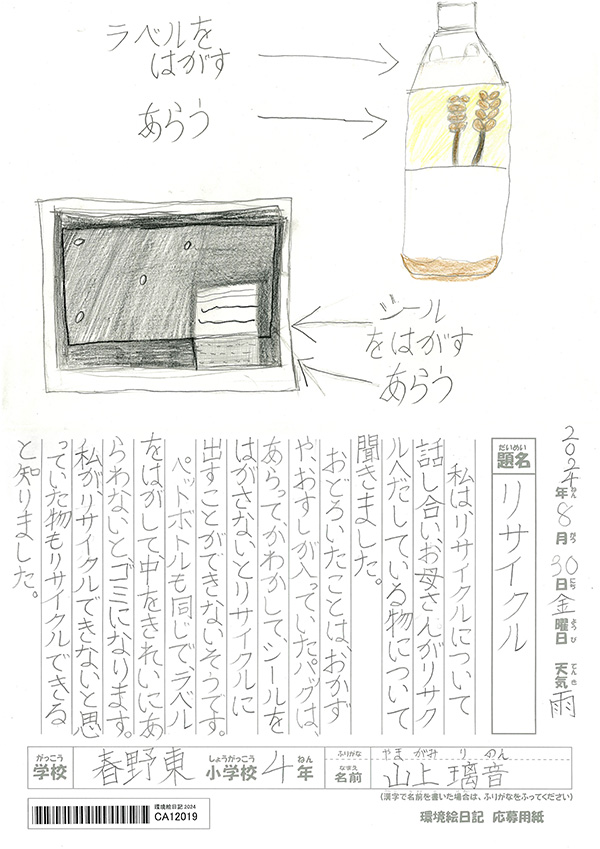 ラベルを
はがす
あらう
シール
をはがす
あらう
2024年8月30日金曜日 天気雨
ねん がつ にち ようび てんき
だいめい
題名
リサイクル
私はリサイクルについて
話し合い、お母さんがリサク
ルへだしている物について
聞きました。
おどろいたことは、おかず
や、おすしが入っていたパックは、
あらって、かわかして、シールを
はがさないとリサイクルに
出すことができないそうです。
ペットボトルも同じで、ラベル
をはがして、中をきれいにあ
らわないと、ゴミになります。
私が、リサイクルできないと思
っていた物もリサイクルできる
と知りました。
がっこう しょうがっこう ねん ふりがな やまがみ りのん
学校 春野東 小学校 4年 なまえ 名前 山上 璃音
(漢字で名前を書いた場合は、ふりがなをふってください)
環境絵日記 2024
CA12019
環境絵日記 応募用紙